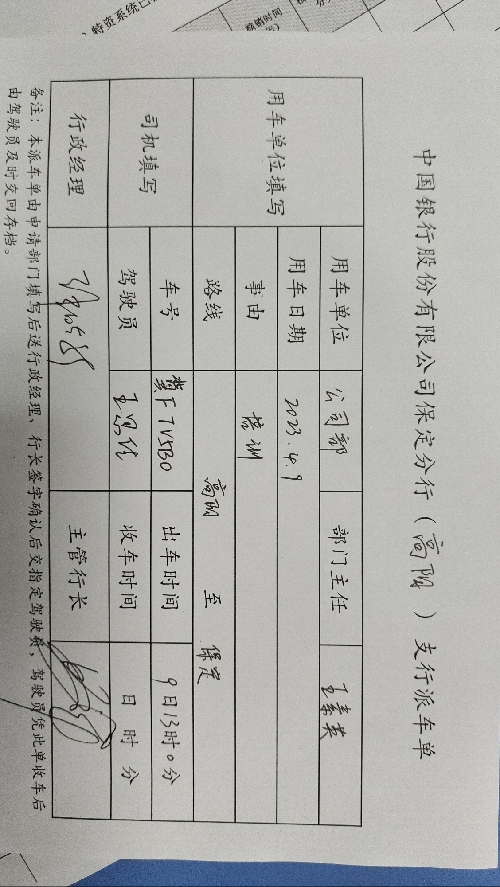 特资系统已
核销时间
中国银行股份有限公司保定分行（高阳）支行派车单
用车单位填写 用车单位 公司部 部门主任
用车日期 2023.4.9
事由 培训
路线 高阳 至 保定
司机填写 车号 冀F7V5B0 出车时间 9日13时0分
驾驶员 收车时间 日 时 分
行政经理 主管行长
备注：本派车单由申请部门填写后送行政经理、行长签字确认后交指定驾驶员，驾驶员凭此单收车后
由驾驶员及时交回存档。